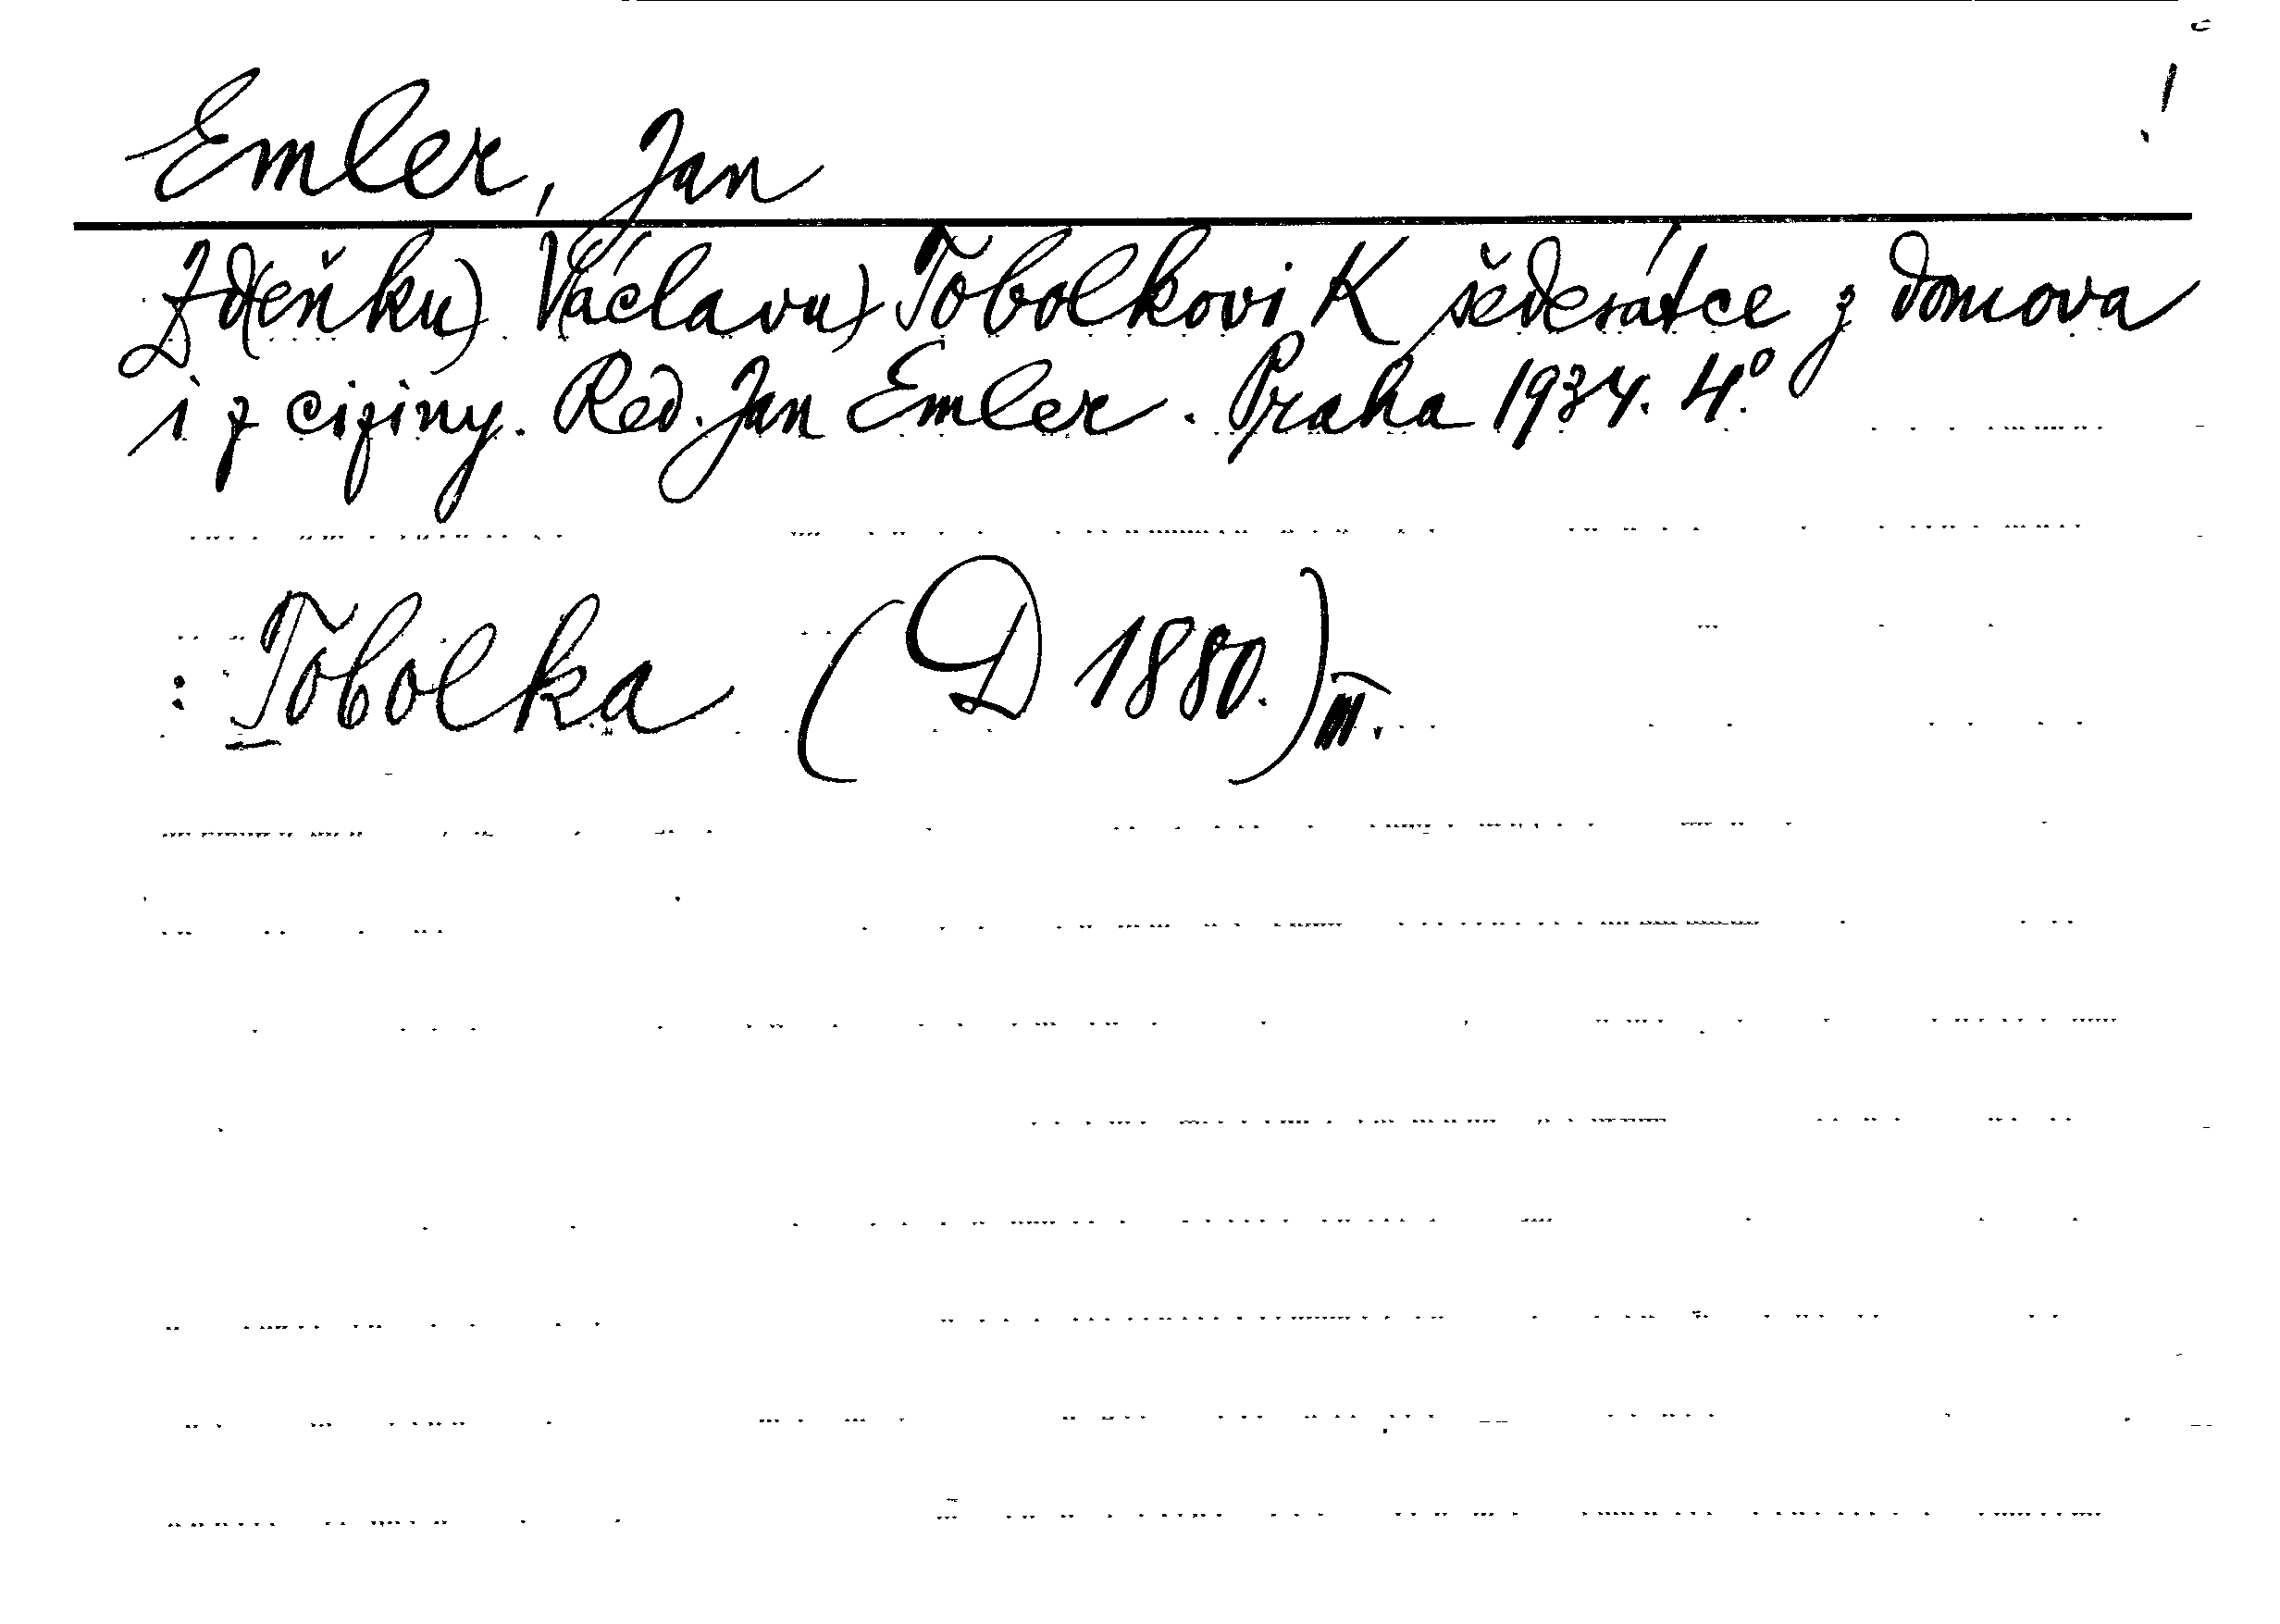 Emler, Jan !
Zd(eňku) V(áclavu) Tobolkovi K šedesátce z domova
i z ciziny. Red. Jan Emler. Praha 1934. 4.°
: Tobolka (D 1880.) III.